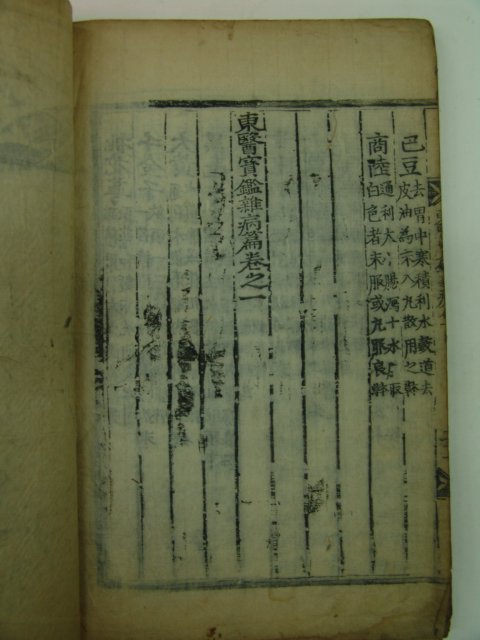 巴豆
去胃中寒積利水穀道去
皮油為末入丸散用之
商陸
通利大小腸瀉十水取
白色者末服或丸服良
東醫寶鑑雜病篇卷之一